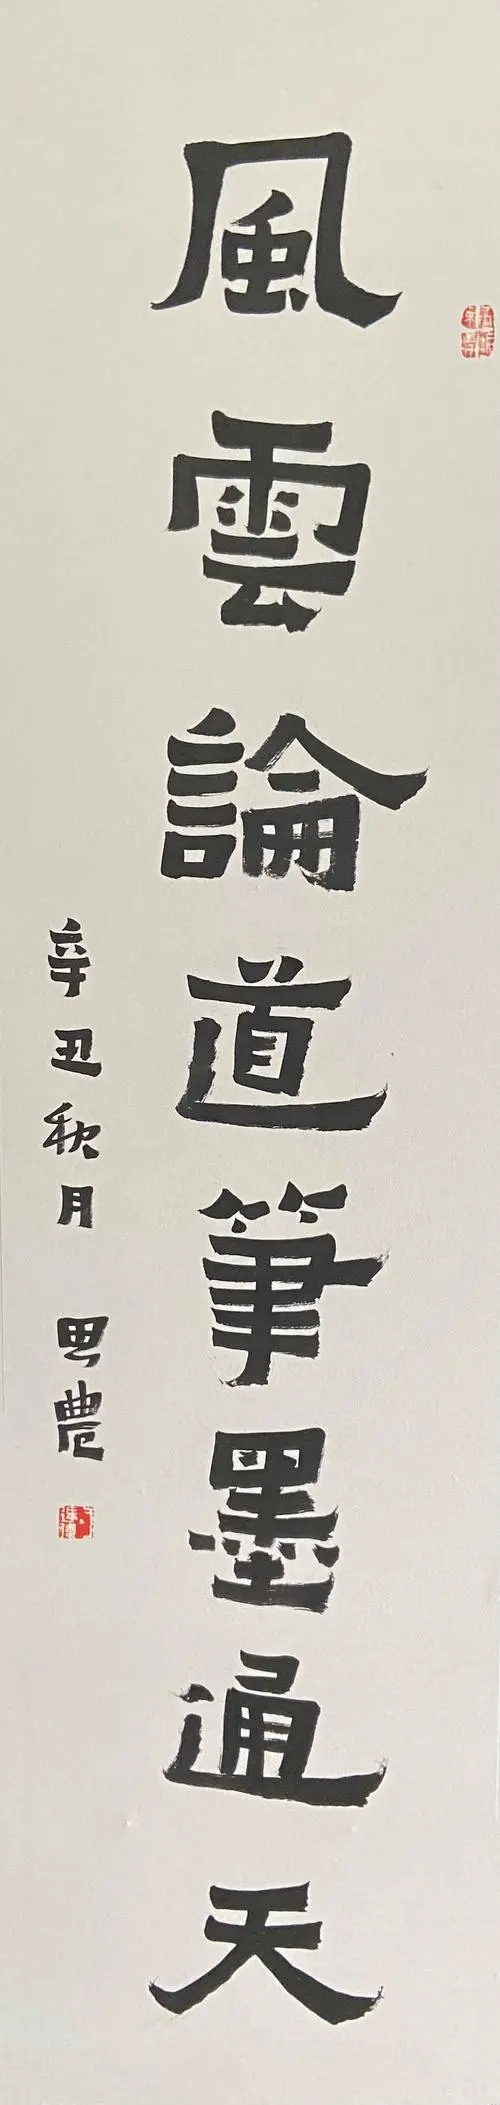 風雲論道筆墨通天
辛丑秋月 農